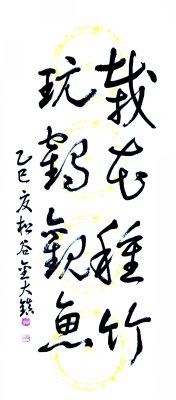 栽花種竹
玩鶴觀魚
乙巳夏松谷金大